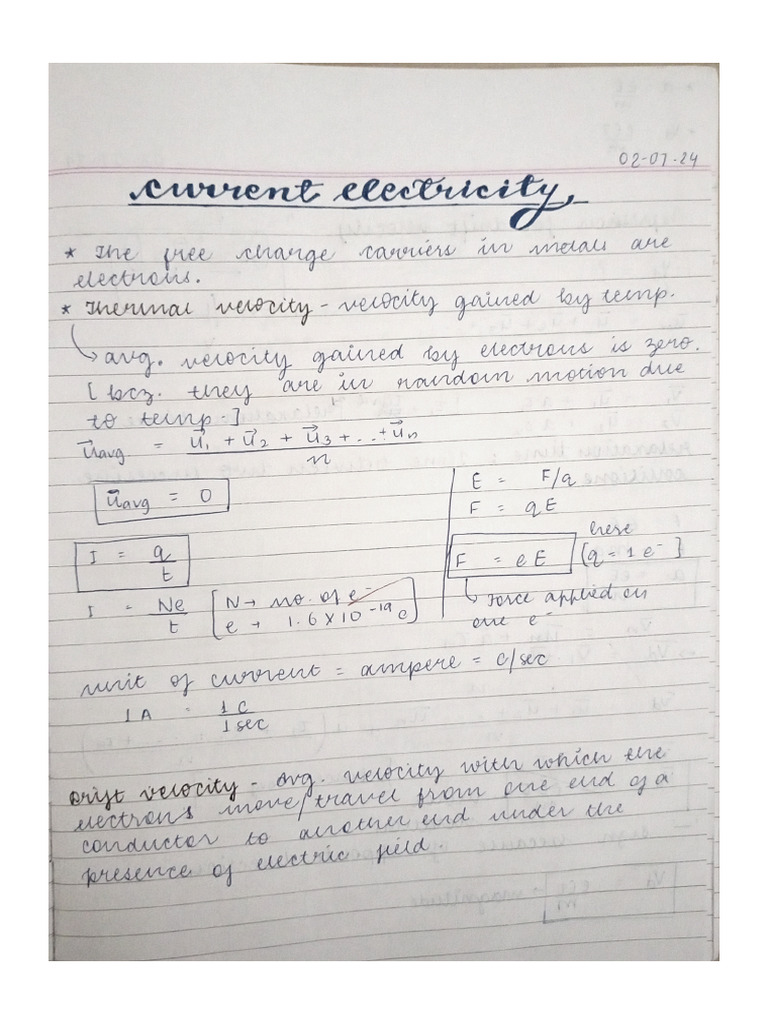 02-07-24
Current electricity
* The free charge carriers in metals are
electrons.
* Thermal velocity - velocity gained by temp.
↳ avg. velocity gained by electrons is zero.
[ bcz. they are in random motion due
to temp. ]
u⃗avg = u⃗₁ + u⃗₂ + u⃗₃ + ... + u⃗n / n
u⃗avg = 0
I = q/t
I = Ne/t [ N → no. of e⁻
e → 1.6 × 10⁻¹⁹ C ]
E = F/q
F = qE
F = eE here [q = 1 e⁻]
↳ Force applied on
one e⁻
unit of current = ampere = C/sec
1 A = 1C / 1 sec
Drift velocity - avg. velocity with which the
electrons move/travel from one end of a
conductor to another end under the
presence of electric field.